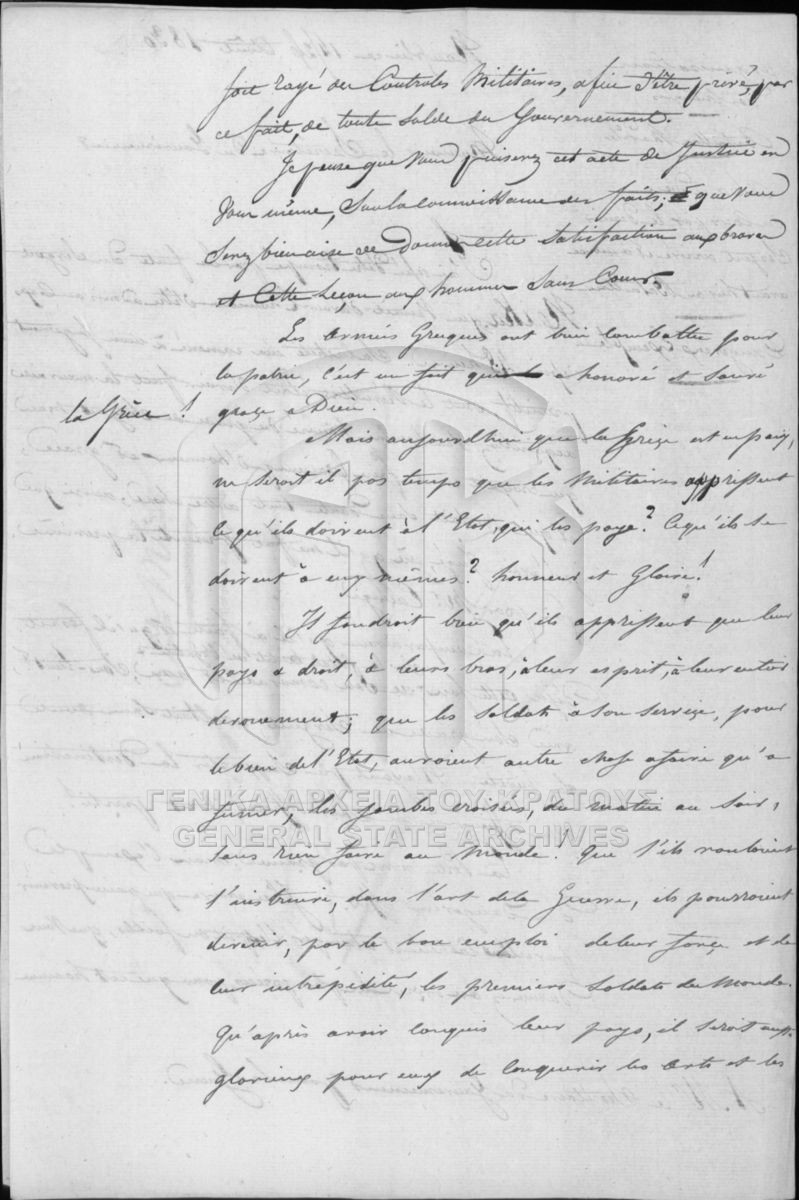 soit rayé des Controles Militaires, afin d'être privé, par
ce fait, de toute solde du Gouvernement.
Je pense que Vous puiserez cet acte de Justice en
Vous même, dans la connaissance des faits; & que Vous
serez bien aise de donner cette satisfaction aux braves
et Cette Leçon aux hommes sans Cœur.
Les Armées Grecques ont bien combattu pour
la patrie, c'est un fait qui a honoré et sauvé
la Grèce! graçe a Dieu.
Mais aujourdhui que la Grèce est en paix,
ne seroit il pas temps que les Militaires apprissent
ce qu'ils doivent à l'Etat qui les paye? Ce qu'ils se
doivent à eux mêmes? honneur et Gloire!
Il faudroit bien qu'ils apprissent que leur
pays a droit, à leurs bras, à leur esprit, à leur entier
devouement; que les soldats à son service, pour
le bien de l'Etat, auroient autre chose a faire qu'a
fumer, les jambes croisées, du matin au soir,
sans rien faire au Monde! Que s'ils vouloient
s'instruire, dans l'art de la Guerre, ils pourroient
devenir, par le bon emploi de leur force et de
leur intrépidité, les premiers soldats du Monde.
Qu'après avoir conquis leur pays, il seroit aussi
glorieux pour eux de conquerir les Arts et les
ΓΕΝΙΚΑ ΑΡΧΕΙΑ ΤΟΥ ΚΡΑΤΟΥΣ
GENERAL STATE ARCHIVES